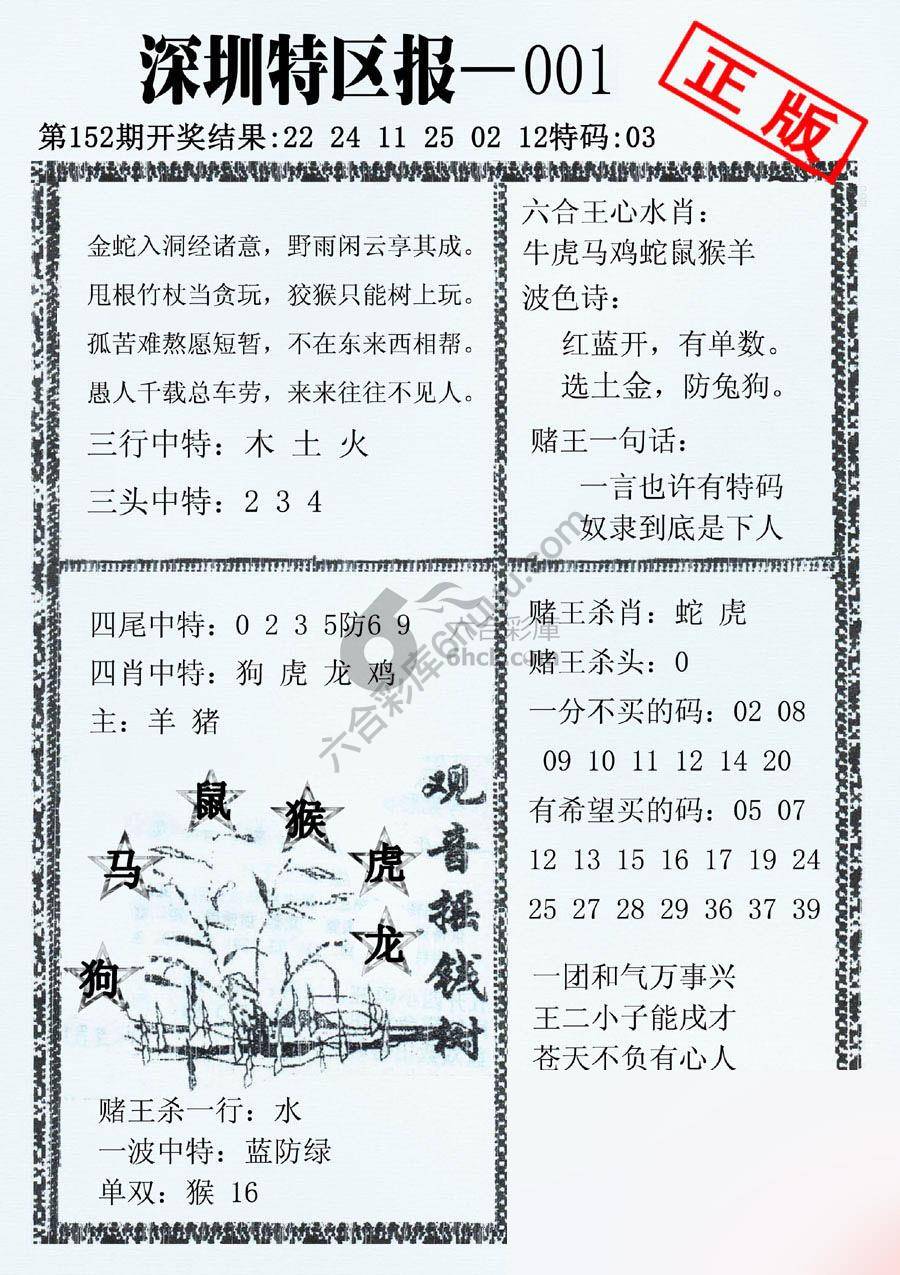 深圳特区报—001
正版
第152期开奖结果:22 24 11 25 02 12特码:03
金蛇入洞经诸意，野雨闲云享其成。
甩根竹杖当贪玩，狡猴只能树上玩。
孤苦难熬愿短暂，不在东来西相帮。
愚人千载总车劳，来来往往不见人。
三行中特：木 土 火
三头中特：2 3 4
六合王心水肖：
牛虎马鸡蛇鼠猴羊
波色诗：
红蓝开，有单数。
选土金，防兔狗。
赌王一句话：
一言也许有特码
奴隶到底是下人
四尾中特：0 2 3 5防6 9
四肖中特：狗 虎 龙 鸡
主：羊 猪
鼠
猴
马
虎
龙
狗
观音摇钱树
赌王杀一行：水
一波中特：蓝防绿
单双：猴 16
赌王杀肖：蛇 虎
赌王杀头：0
一分不买的码：02 08
09 10 11 12 14 20
有希望买的码：05 07
12 13 15 16 17 19 24
25 27 28 29 36 37 39
一团和气万事兴
王二小子能戌才
苍天不负有心人
六合彩库
六合彩庫